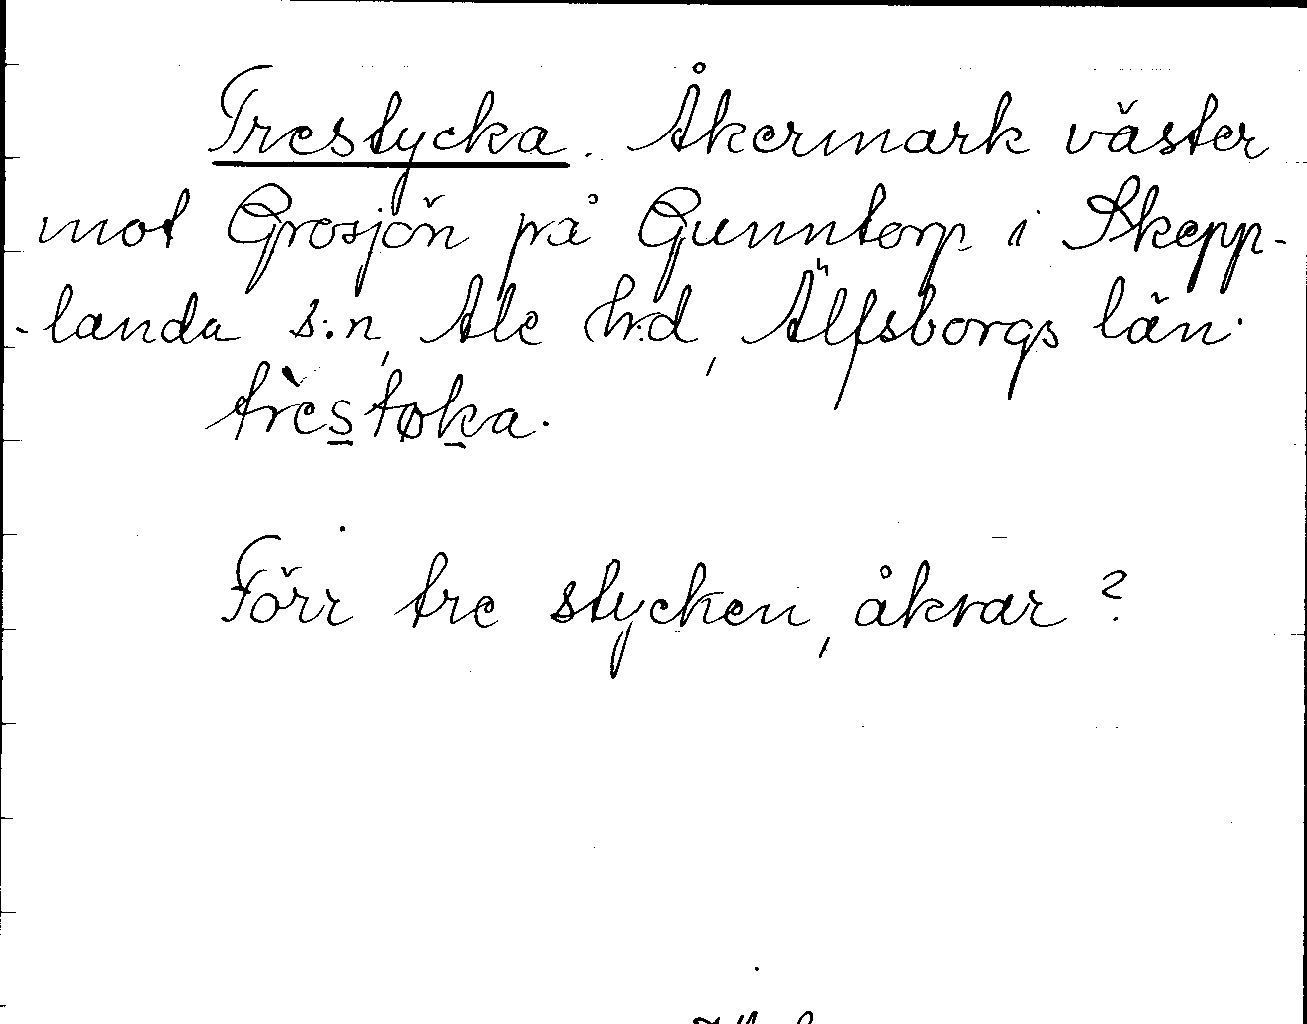 Trestycka. Åkermark väster
mot Grosjön på Gunntorp i Skepp-
-landa s:n, Ale h:d, Älfsborgs län.
trèstøka.
Förr tre stycken, åkrar?